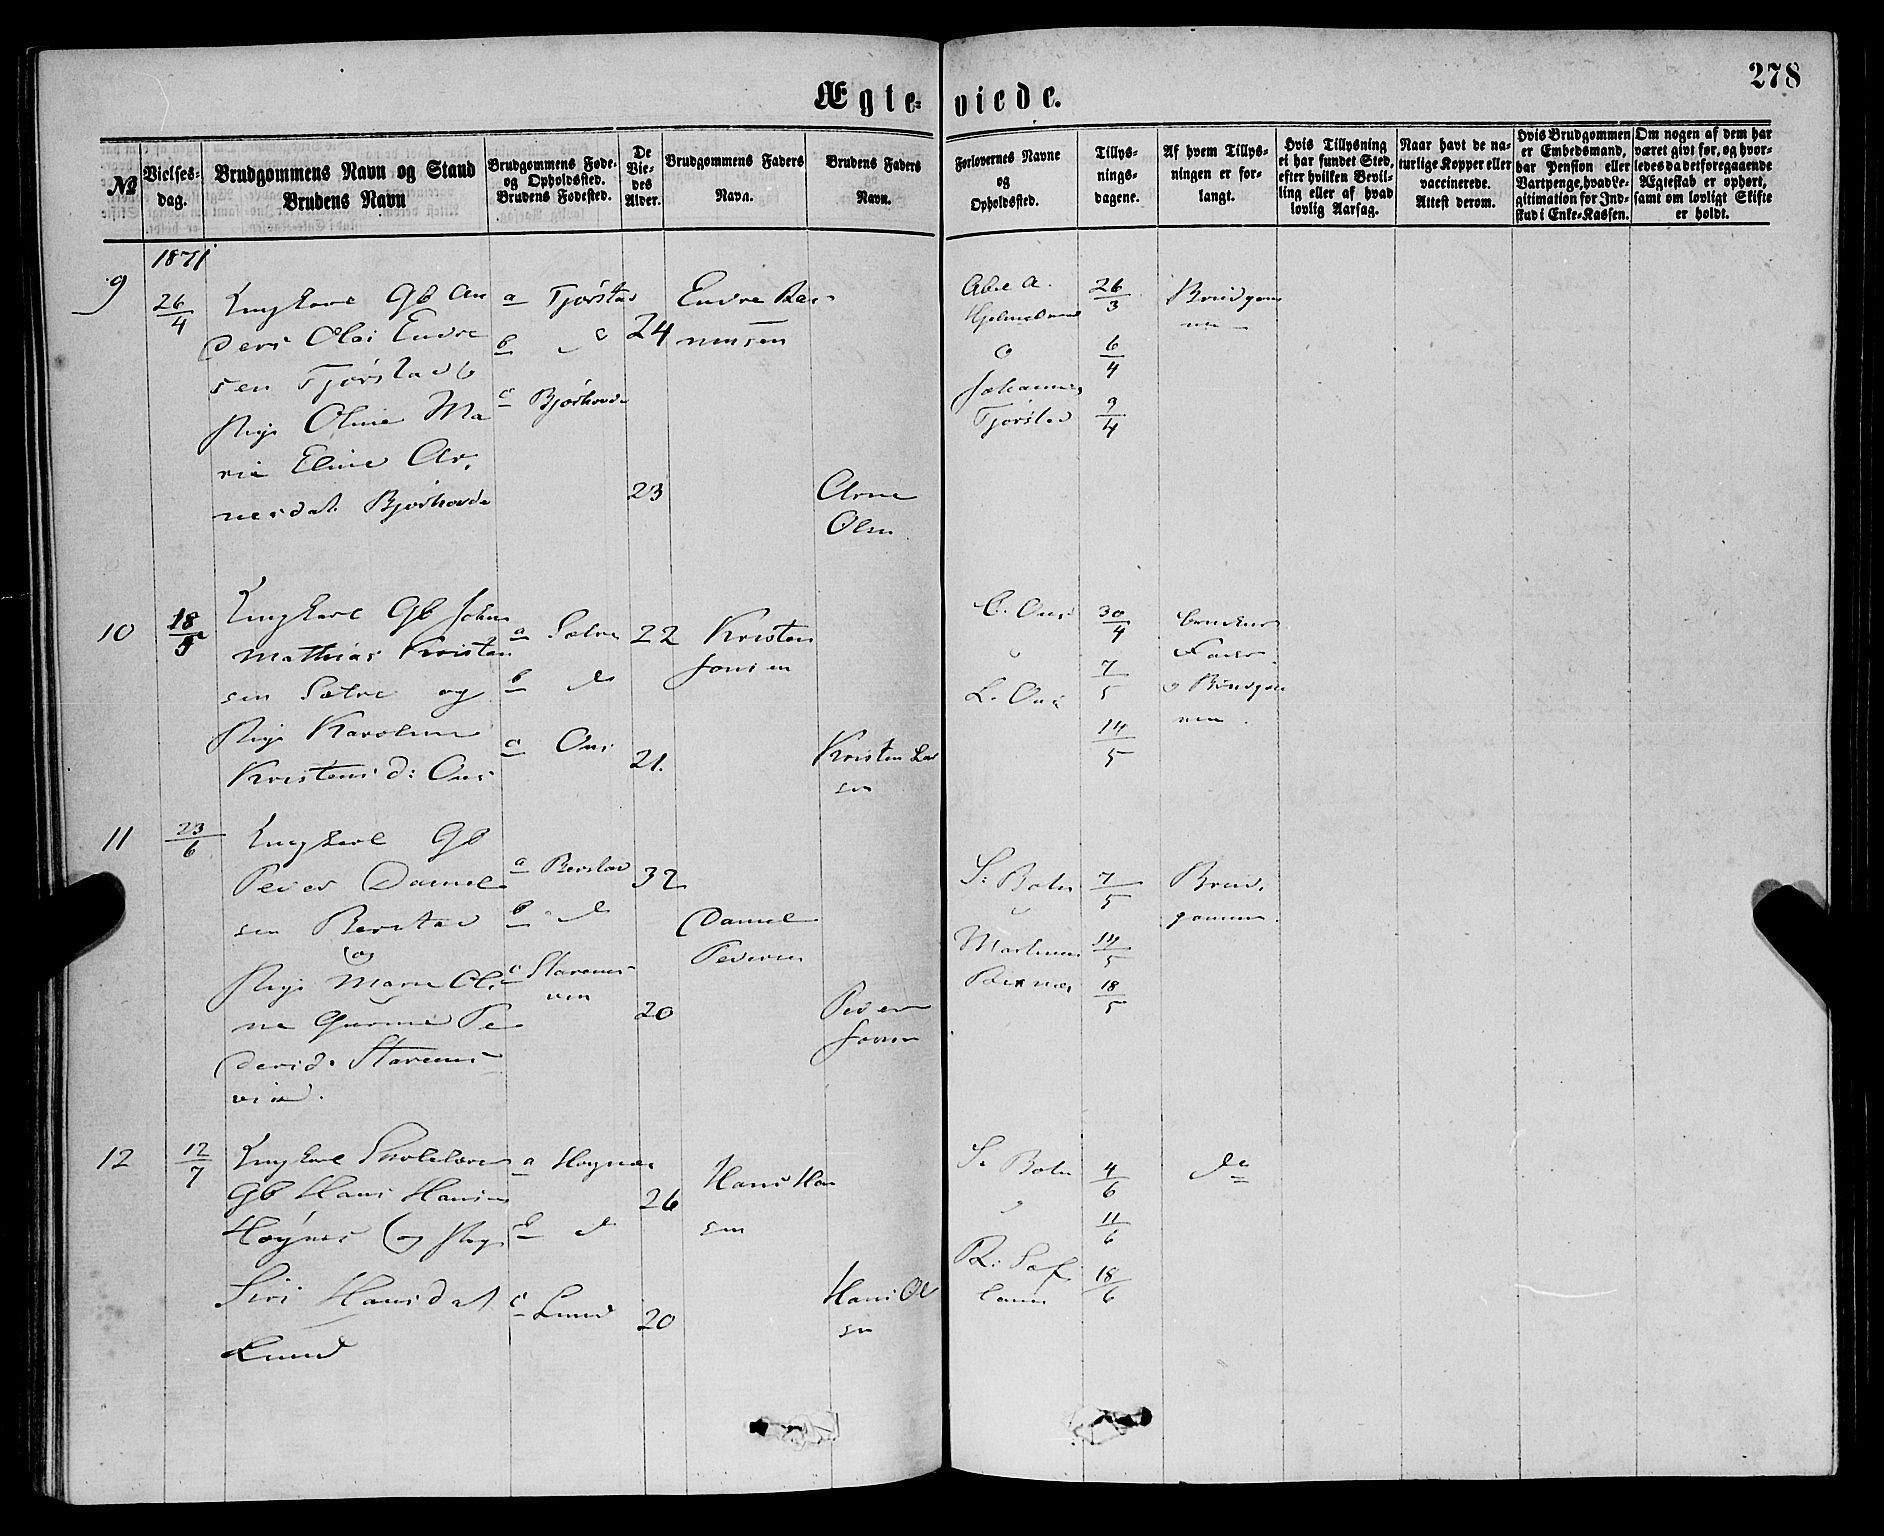 278
Ægte-viede.
№
Vielses-
dag.
Brudgommens Navn og Stand
Brudens Navn
Brudgommens Føde-
og Opholdssted.
Brudens Fødested.
De
Vie-
des
Alder.
Brudgommens Faders
Navn.
Brudens Faders
Navn.
Forlovernes Navne
og
Opholdssted.
Tillys-
nings-
dagene.
Af hvem Tillys-
ningen er for-
langt.
Hvis Tillysning
ei har fundet Sted,
efter hvilken Bevil-
ling eller af hvad
lovlig Aarsag.
Naar havt de na-
turlige Kopper eller
vaccinerede.
Attest derom.
Hvis Brudgommen
er Embedsmand,
har Pension eller
Vartpenge, hvad Le-
gitimation for Ind-
skud i Enke-Kassen.
Om nogen af dem har
været givt før, og hvor-
ledes da det foregaaende
Ægteskab er ophørt,
samt om lovligt Skifte
er holdt.
1871
9
26/4
Ungkarl Gb An
ders Olai Endre
sen Tjørstad o
Pige Oline Ma
rie Eline Ar,
nesdat. Bjørhovde
a Tjørstad
b d
c Bjørhovde
24
23
Endre Ras
musen
Arne
Olsn
Abel A.
o
Johannes
Tjørstad
26/3
6/4
9/4
Brudgom
men
10
18/5
Ungkarl Gb Johan
Mathias Kristen
sen Sætre og
Pige Karoline
Kristens d: Ous
a Sætre
b d
c Ous
22
21.
Kristen
Jonsen
Kristen Las
sen
C. Ous
o
L. Ous
30/4
7/5
14/5
Brudens
Fader
o Brudgom
men.
11
23/6
Ungkarl Gb
Peder Daniel
sen Berstad
og
Pige Marie Oli
ne Gurine Pe
dersd. Starens
vin.
a Berstad
b d
c Starens
vin
32
20
Daniel
Pedersen
Peder
S: Botn
o
Martinus
7/5
14/5
18/5
Brud,
gommen.
12
12/7
Ungkarl Skolelærer
Gb Hans Hansen
Høynes og Pige
Siri Hansdat
Lund
a Høynes
b d
c Lund
26
20
Hans Han
sen
Hans Ol
sn
S: Botn
o
4/6
11/6
18/6
do